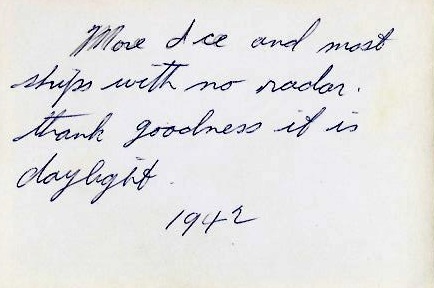 More Ice and most
ships with no radar.
thank goodness it is
daylight.
1942